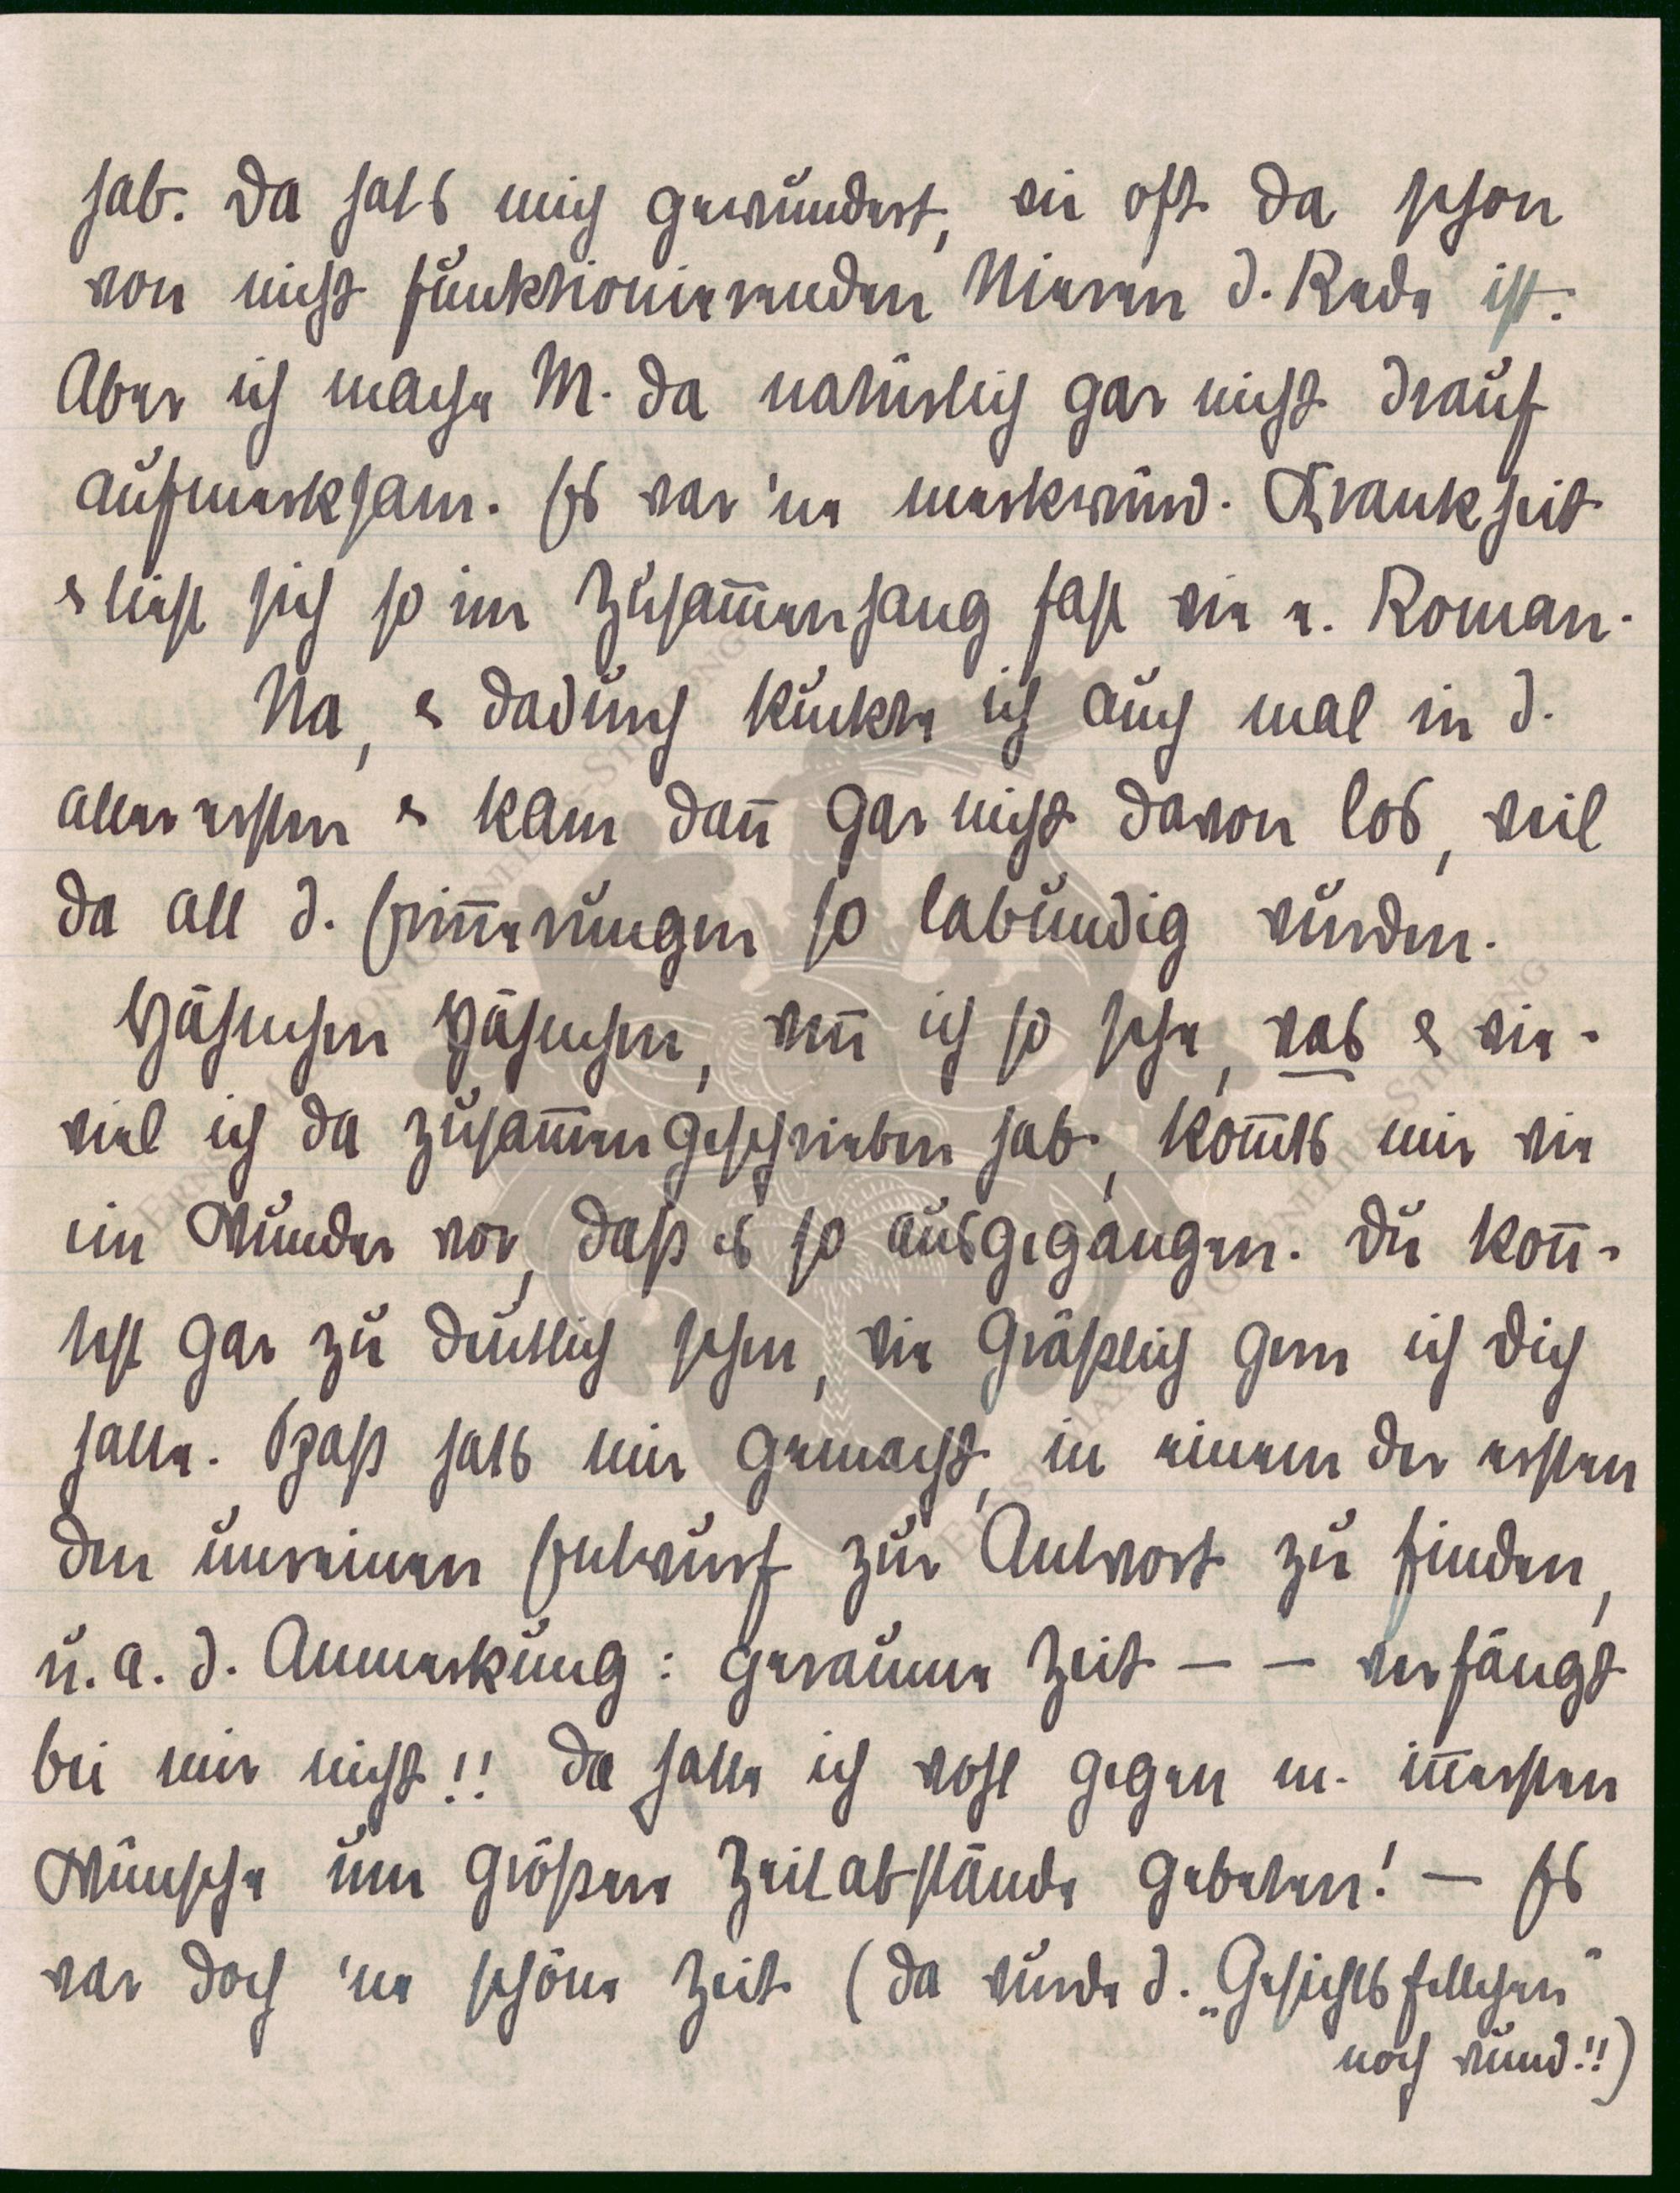 hab. Da hats mich gewundert, wie oft da schon
von nicht funktionierenden Nieren d. Rede ist.
Aber ich mache M. da natürlich gar nicht drauf
aufmerksam. Es war 'ne merkwürd. Krankheit
& liest sich so im Zusam̅enhang fast wie e. Roman.
Na, & dadurch kuckte ich auch mal in d.
allerersten & kam dan̅ gar nicht davon los, weil
da all d. Erin̅erungen so lebendig wurden.
Häschen Häschen, wen̅ ich so sehe, was & wie-
viel ich da zusam̅engeschrieben hab, kom̅ts mir wie
ein Wunder vor, daß es so ausgegangen. Du kon̅-
test gar zu deutlich sehen, wie gräßlich gern ich Dich
hatte. Spaß hats mir gemacht, in einem der ersten
den unreinen Entwurf zur Antwort zu finden,
u. a. d. Anmerkung: geraume Zeit – – verfängt
bei mir nicht!! Da hatte ich wohl gegen m. in̅ersten
Wünsche um größere Zeitabstände gebeten! – Es
war doch 'ne schöne Zeit (da wurde d. „Gesichtsfellchen"
noch rund!!)
ERNST MORITZ
STIFTUNG